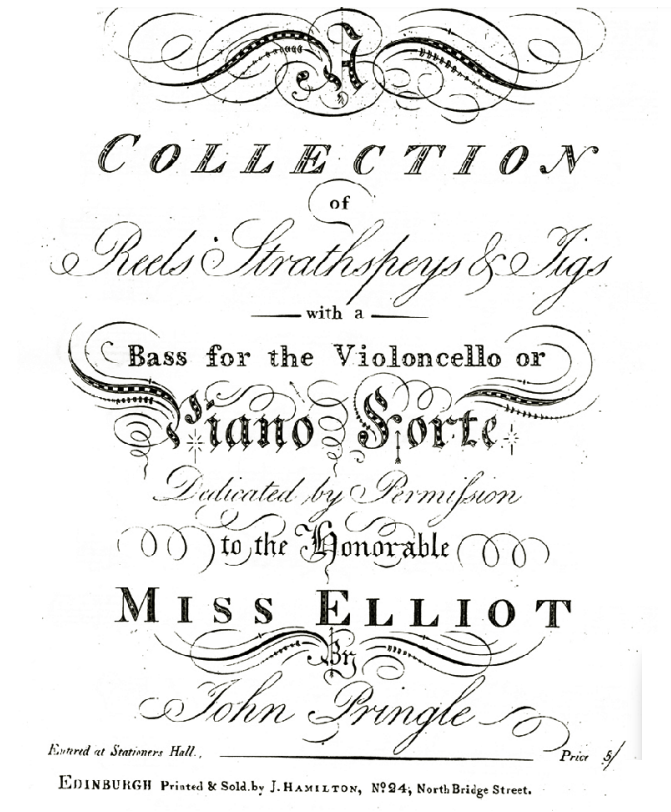 A
COLLECTION
of
Reels Strathspeys & Jigs
with a
Bass for the Violoncello or
Piano Forte
Dedicated by Permiſsion
to the Honorable
MISS ELLIOT
By
John Pringle
Entered at Stationers Hall. Price 5/
EDINBURGH Printed & Sold by J. HAMILTON, No. 24, North Bridge Street.